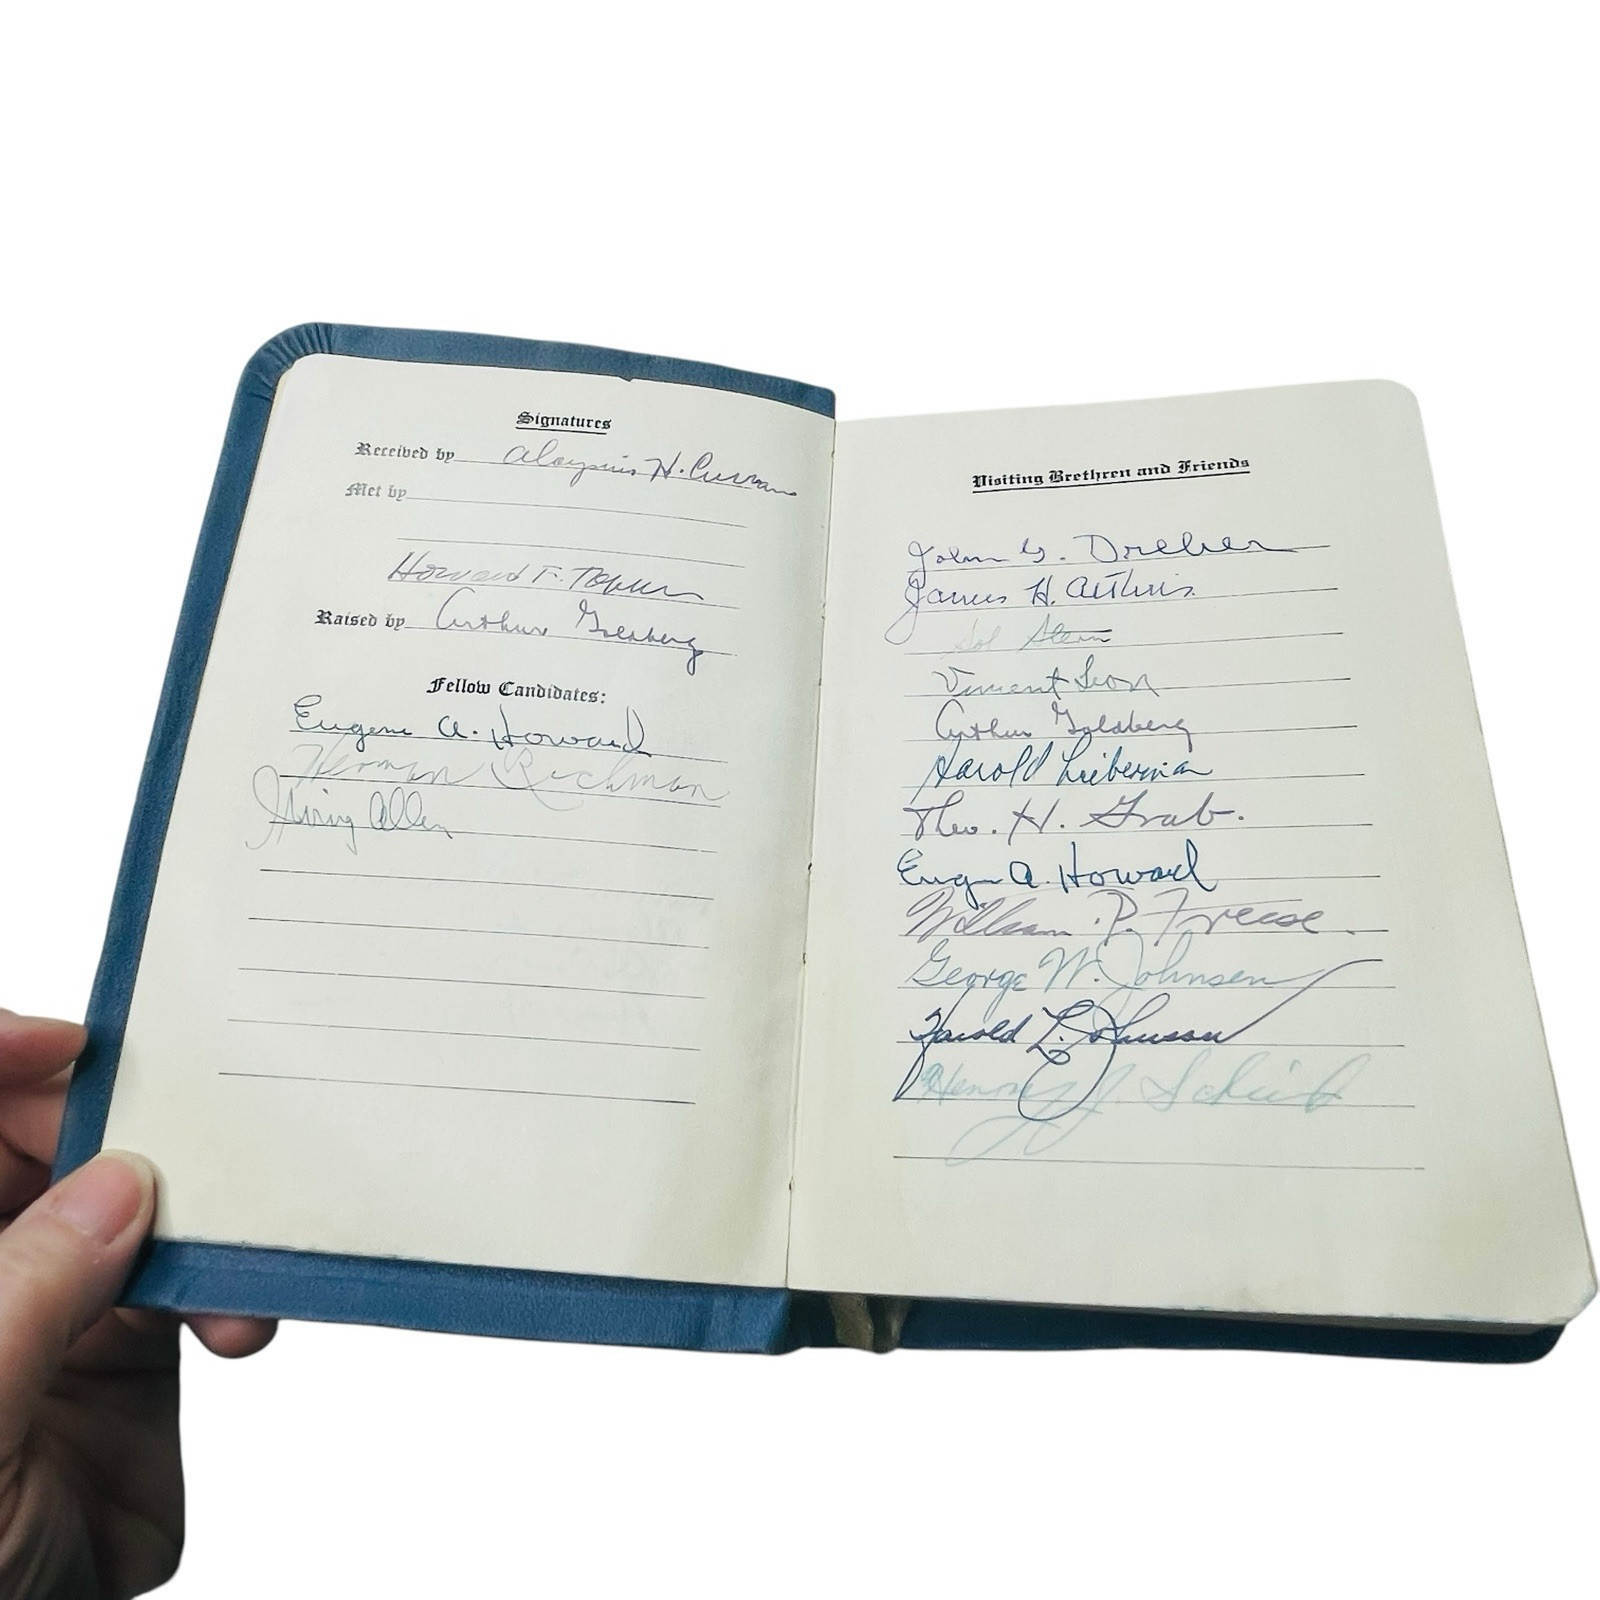 Signatures
Received by Aloysius H. Curran
Met by
Howard F.
Raised by Arthur Goldberg
Fellow Candidates:
Eugene A. Howard
Herman Richman
Irving Allen
Visiting Brethren and Friends
John G. Dreher
James H.
Sol Stern
Vincent Leon
Arthur Goldberg
Harold Lieberman
Theo. H. Grab.
Eugene A. Howard
William P. Freese.
George W. Johnsen
Harold L. Johnson
Henry J.